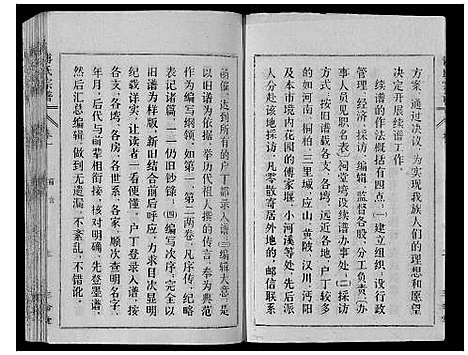 方案，通过决议，为实现我族人们的理想和愿望
决定开展续谱工作。
续谱的作法概括有四点。㈠建立组织，设行政
管理、经济、采访、编辑、监督各股，分工负责，
事人员见职名表︶祠堂垮设续谱办事处。㈡采访
方式，按旧谱载各支、各塆，远近各地、户丁较多
的如河南、桐柏、三里城、应山、黄陂、汉川、沔阳
及本市境内花园的傅家堰，小河溪等处，先后派
人分赴该地采访，凡零散寄居外地的，邮信联系
函催，达到所有的户丁都录入谱。㈢编辑大意，是
以旧谱为根据，举历代祖人撰的传言，奉为典范
编写为纲领，如第一、第二两卷，凡序传、纪略
表记诸篇，一一仍旧钞録。㈣编写次序，完全以
旧谱为样版，新旧结合，前后呼应，力求目次显明
纪载详实，让读者一看便懂，户丁登录入谱，按
各支、各塆、各房、各世系，各家，顺次查明名字，
年月，后代与前辈相衔接，核对明确，先登墨谱，
然后汇总编辑，做到无遗漏，不紊乱，不错讹。
氏宗谱
卷一